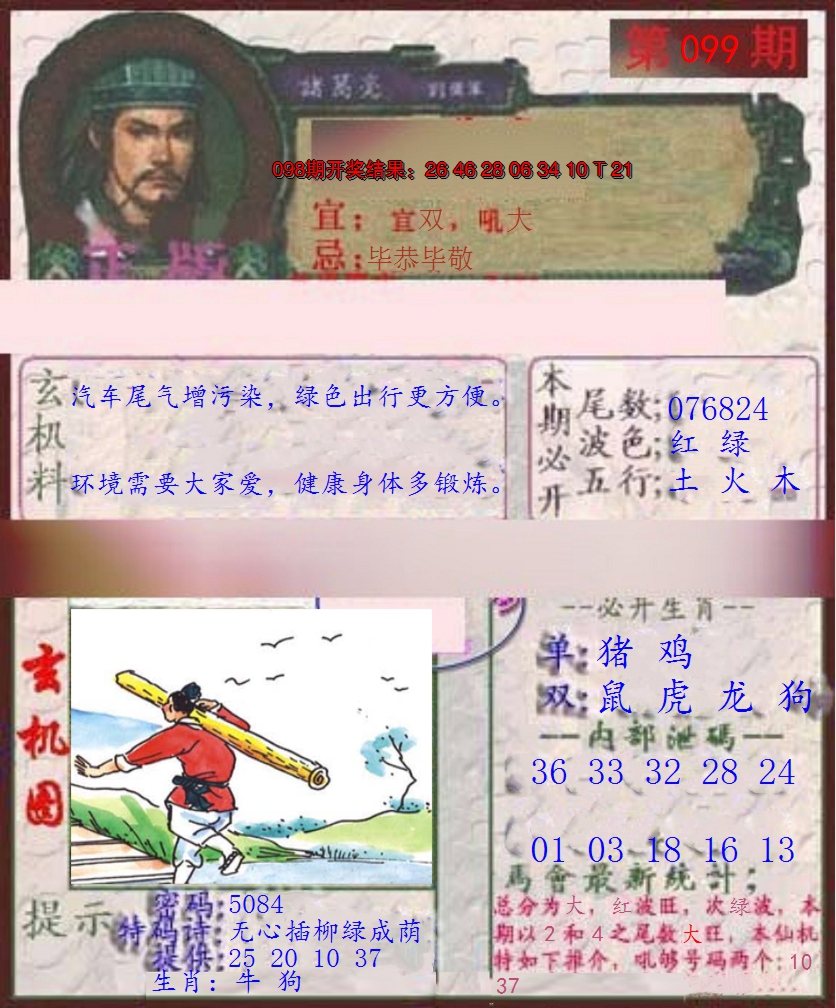 第 099 期
諸葛亮 劉備軍
098期开奖结果：26 46 28 06 34 10 T 21
宜；宜双，吼大
忌；毕恭毕敬
正版
玄机料
汽车尾气增污染，绿色出行更方便。
环境需要大家爱，健康身体多锻炼。
本期必开
尾数；076824
波色；红 绿
五行；土 火 木
--必开生肖--
单：猪 鸡
双：鼠 虎 龙 狗
--内部泄碼--
36 33 32 28 24
01 03 18 16 13
玄机图
提示
密码：5084
特码诗：无心插柳绿成荫
提供：25 20 10 37
生肖：牛 狗
馬會最新統計；
总分为大，红波旺，次绿波，本
期以2和4之尾数大旺，本仙机
特如下推介，吼够号码两个：10
37